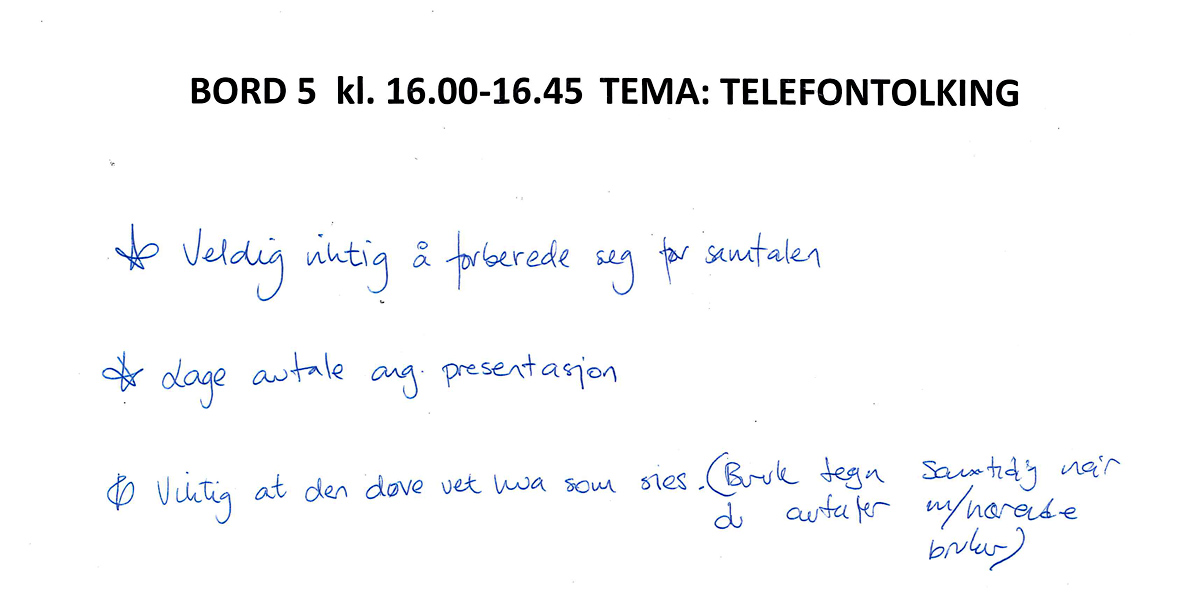 BORD 5 kl. 16.00-16.45 TEMA: TELEFONTOLKING
Veldig viktig å forberede seg før samtalen
Lage avtale ang. presentasjon
Viktig at den døve vet hva som sies. (Bruk tegn samtidig når
du avtaler m/hørende
bruker)